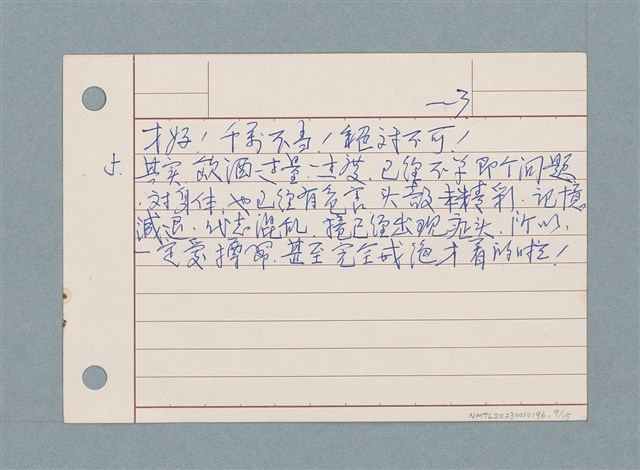 —3
才好！千萬不爲！絕对不可！
5. 其实飲酒过量.过度.已經不单即个问题
对身体.也已經有危害.头殻.精彩.记憶
減退.代志混乱.攏已經出现症头.所以,
一定爱撙節.甚至完全戒絕才着的啦！
NMTL20230010196. 9/15